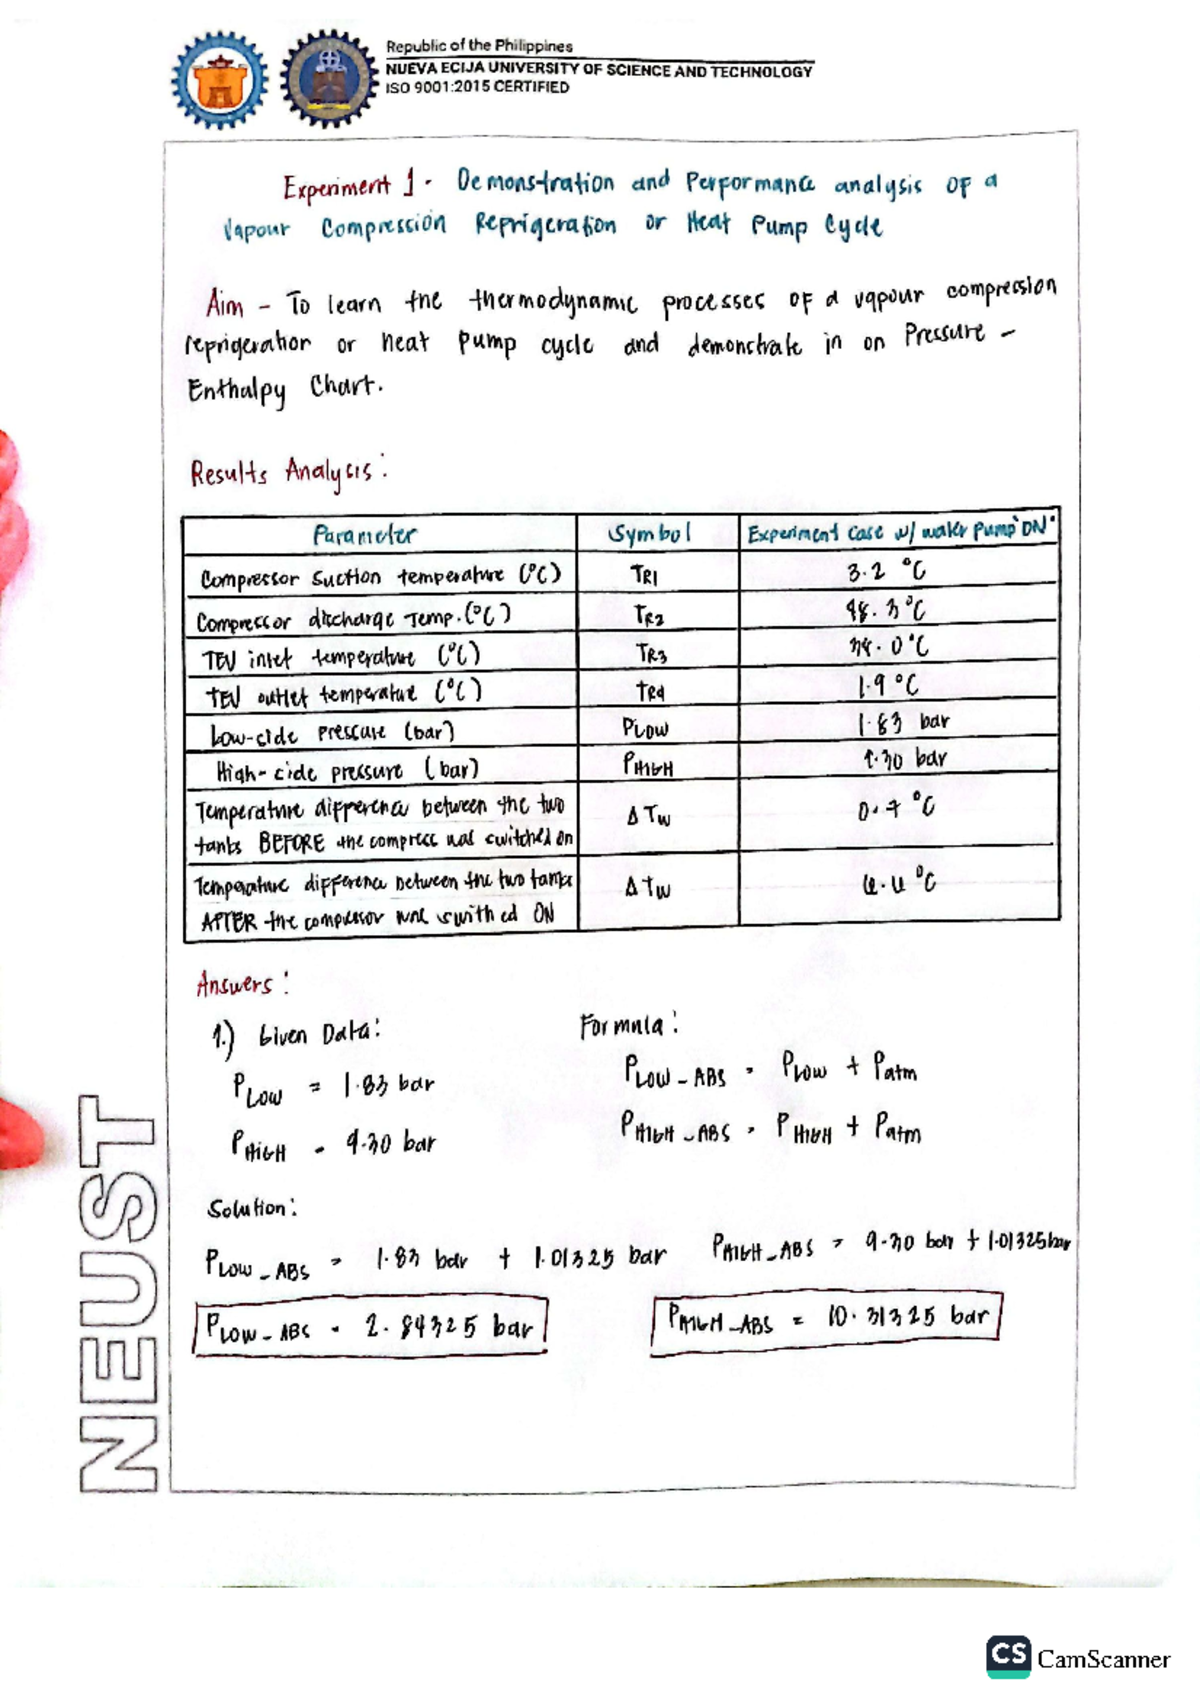 Republic of the Philippines
NUEVA ECIJA UNIVERSITY OF SCIENCE AND TECHNOLOGY
ISO 9001:2015 CERTIFIED
Experiment 1 - Demonstration and Performance analysis of a
Vapour Compression Refrigeration or Heat Pump Cycle
Aim - To learn the thermodynamic processes of a vapour compression
refrigeration or heat pump cycle and demonstrate in on Pressure -
Enthalpy Chart.
Results Analysis:
Parameter Symbol Experiment Case w/ water pump "ON"
Compressor Suction temperature (°C) TR1 3.2 °C
Compressor discharge Temp. (°C) TR2 48.3 °C
TEV inlet temperature (°C) TR3 .0 °C
TEV outlet temperature (°C) TR4 1.9 °C
Low-side pressure (bar) PLOW 1.83 bar
High-side pressure (bar) PHIGH 9.30 bar
Temperature difference between the two ΔTw 0.7 °C
tanks BEFORE the compress was switched on
Temperature difference between the two tanks ΔTw °C
AFTER the compressor was swithed ON
Answers:
1.) Given Data: Formula:
PLOW = 1.83 bar PLOW-ABS = PLOW + Patm
PHIGH = 9.30 bar PHIGH-ABS = PHIGH + Patm
Solution:
PLOW-ABS = 1.83 bar + 1.01325 bar PHIGH-ABS = 9.30 bar + 1.01325 bar
PLOW-ABS = 2.84325 bar PHIGH-ABS = 10.31325 bar
NEUST
CS CamScanner